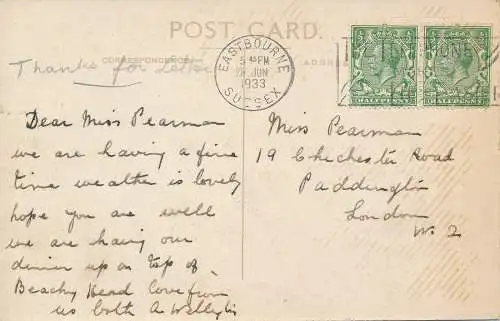 POST CARD.
CORRESPONDENCE
ADDRESS
Thanks for Letter
EASTBOURNE
5 45 PM
28 JUN
1933
SUSSEX
HALFPENNY
HALFPENNY
Dear Miss Pearman
we are having a fine
time weather is lovely
hope you are well
we are having our
dinner up on top of
Beachy Head Love from
us both A
Miss Pearman
19 Chichester Road
Paddington
London
W. 2